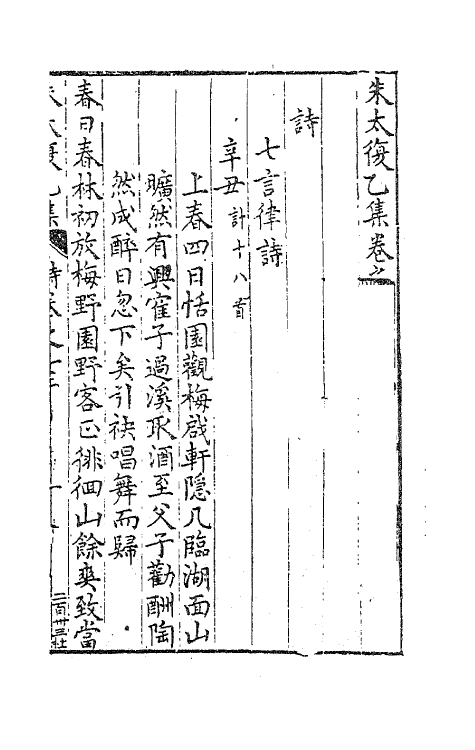 朱太復乙集卷之
詩
七言律詩
辛丑計十八首
上春四日恬園觀梅啟軒隱几臨湖面山
曠然有興寉子過溪取酒至父子勸酬陶
然成醉日忽下矣引袂唱舞而歸
春日春林初放梅野園野客正徘徊山餘爽致當